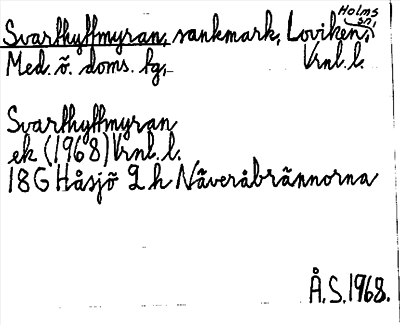 Holms
sn,
Svarthyttmyran, sankmark, Loviken,
Med. ö. doms. tg, Vrnl. l.
Svarthyttmyran
ek (1968) Vrnl. l.
18G Håsjö 2h Näveråbrännorna
Å.S. 1968.